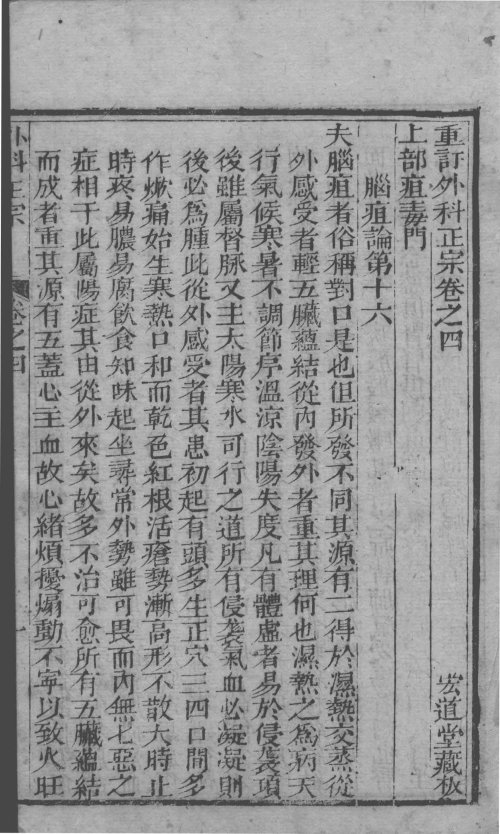 重訂外科正宗卷之四
宏道堂藏板
上部疽毒門
腦疽論第十六
夫腦疽者俗稱對口是也但所發不同其源有二得於濕熱交蒸從
外感受者輕五臟蘊結從內發外者重其理何也濕熱之爲病天
行氣候寒暑不調節序溫涼陰陽失度凡有體虛者易於侵襲項
後雖屬督脉又主太陽寒水司行之道所有侵襲氣血必凝凝則
後必爲腫此從外感受者其患初起有頭多生正穴三四日間多
作焮痛始生寒熱口和而乾色紅根活瘡勢漸高形不散大時止
時疼易膿易腐飲食知味起坐尋常外勢雖可畏而內無七惡之
症相干此屬陽症其由從外來矣故多不治可愈所有五臟蘊結
而成者重其源有五蓋心主血故心緒煩擾煽動不寧以致火旺
外科正宗
卷之四
一